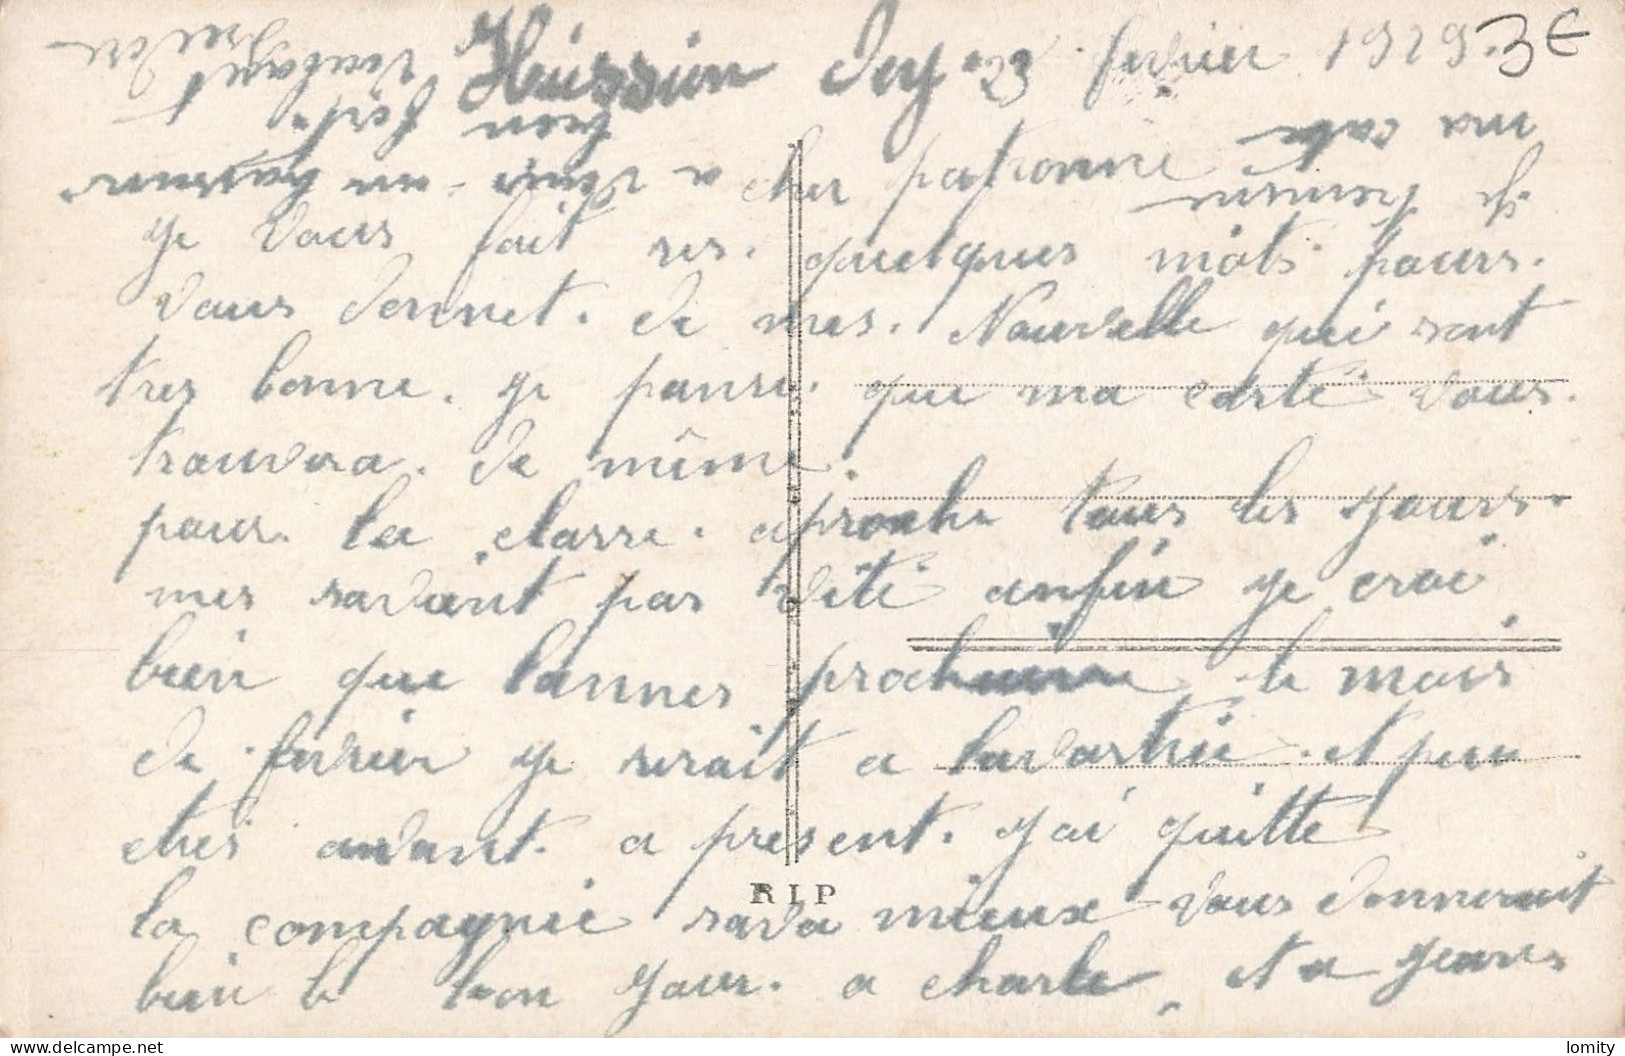 Hussien Dey 23 fevrier 1929. 3€
cher patronne
je vous fait ses. quelques mots pours.
vous donnet. de mes. Nouvelle qui sont
tres bonne. je panse. que ma carte vous.
trouvera. de même.
pour. la classe. aproche tous les jours.
mes savaint pas vite anfin je croi
bien que lannes prochaine le mois
de fevrier je serait a lavastrie. et peu
etres avant. a present. j'ai quitte
la compagnie sava mieux vous donnerait
bien le bon jour. a charle et a jeans
je termine
ma carte
a vous
bien fort.
RIP
delcampe.net
lomity